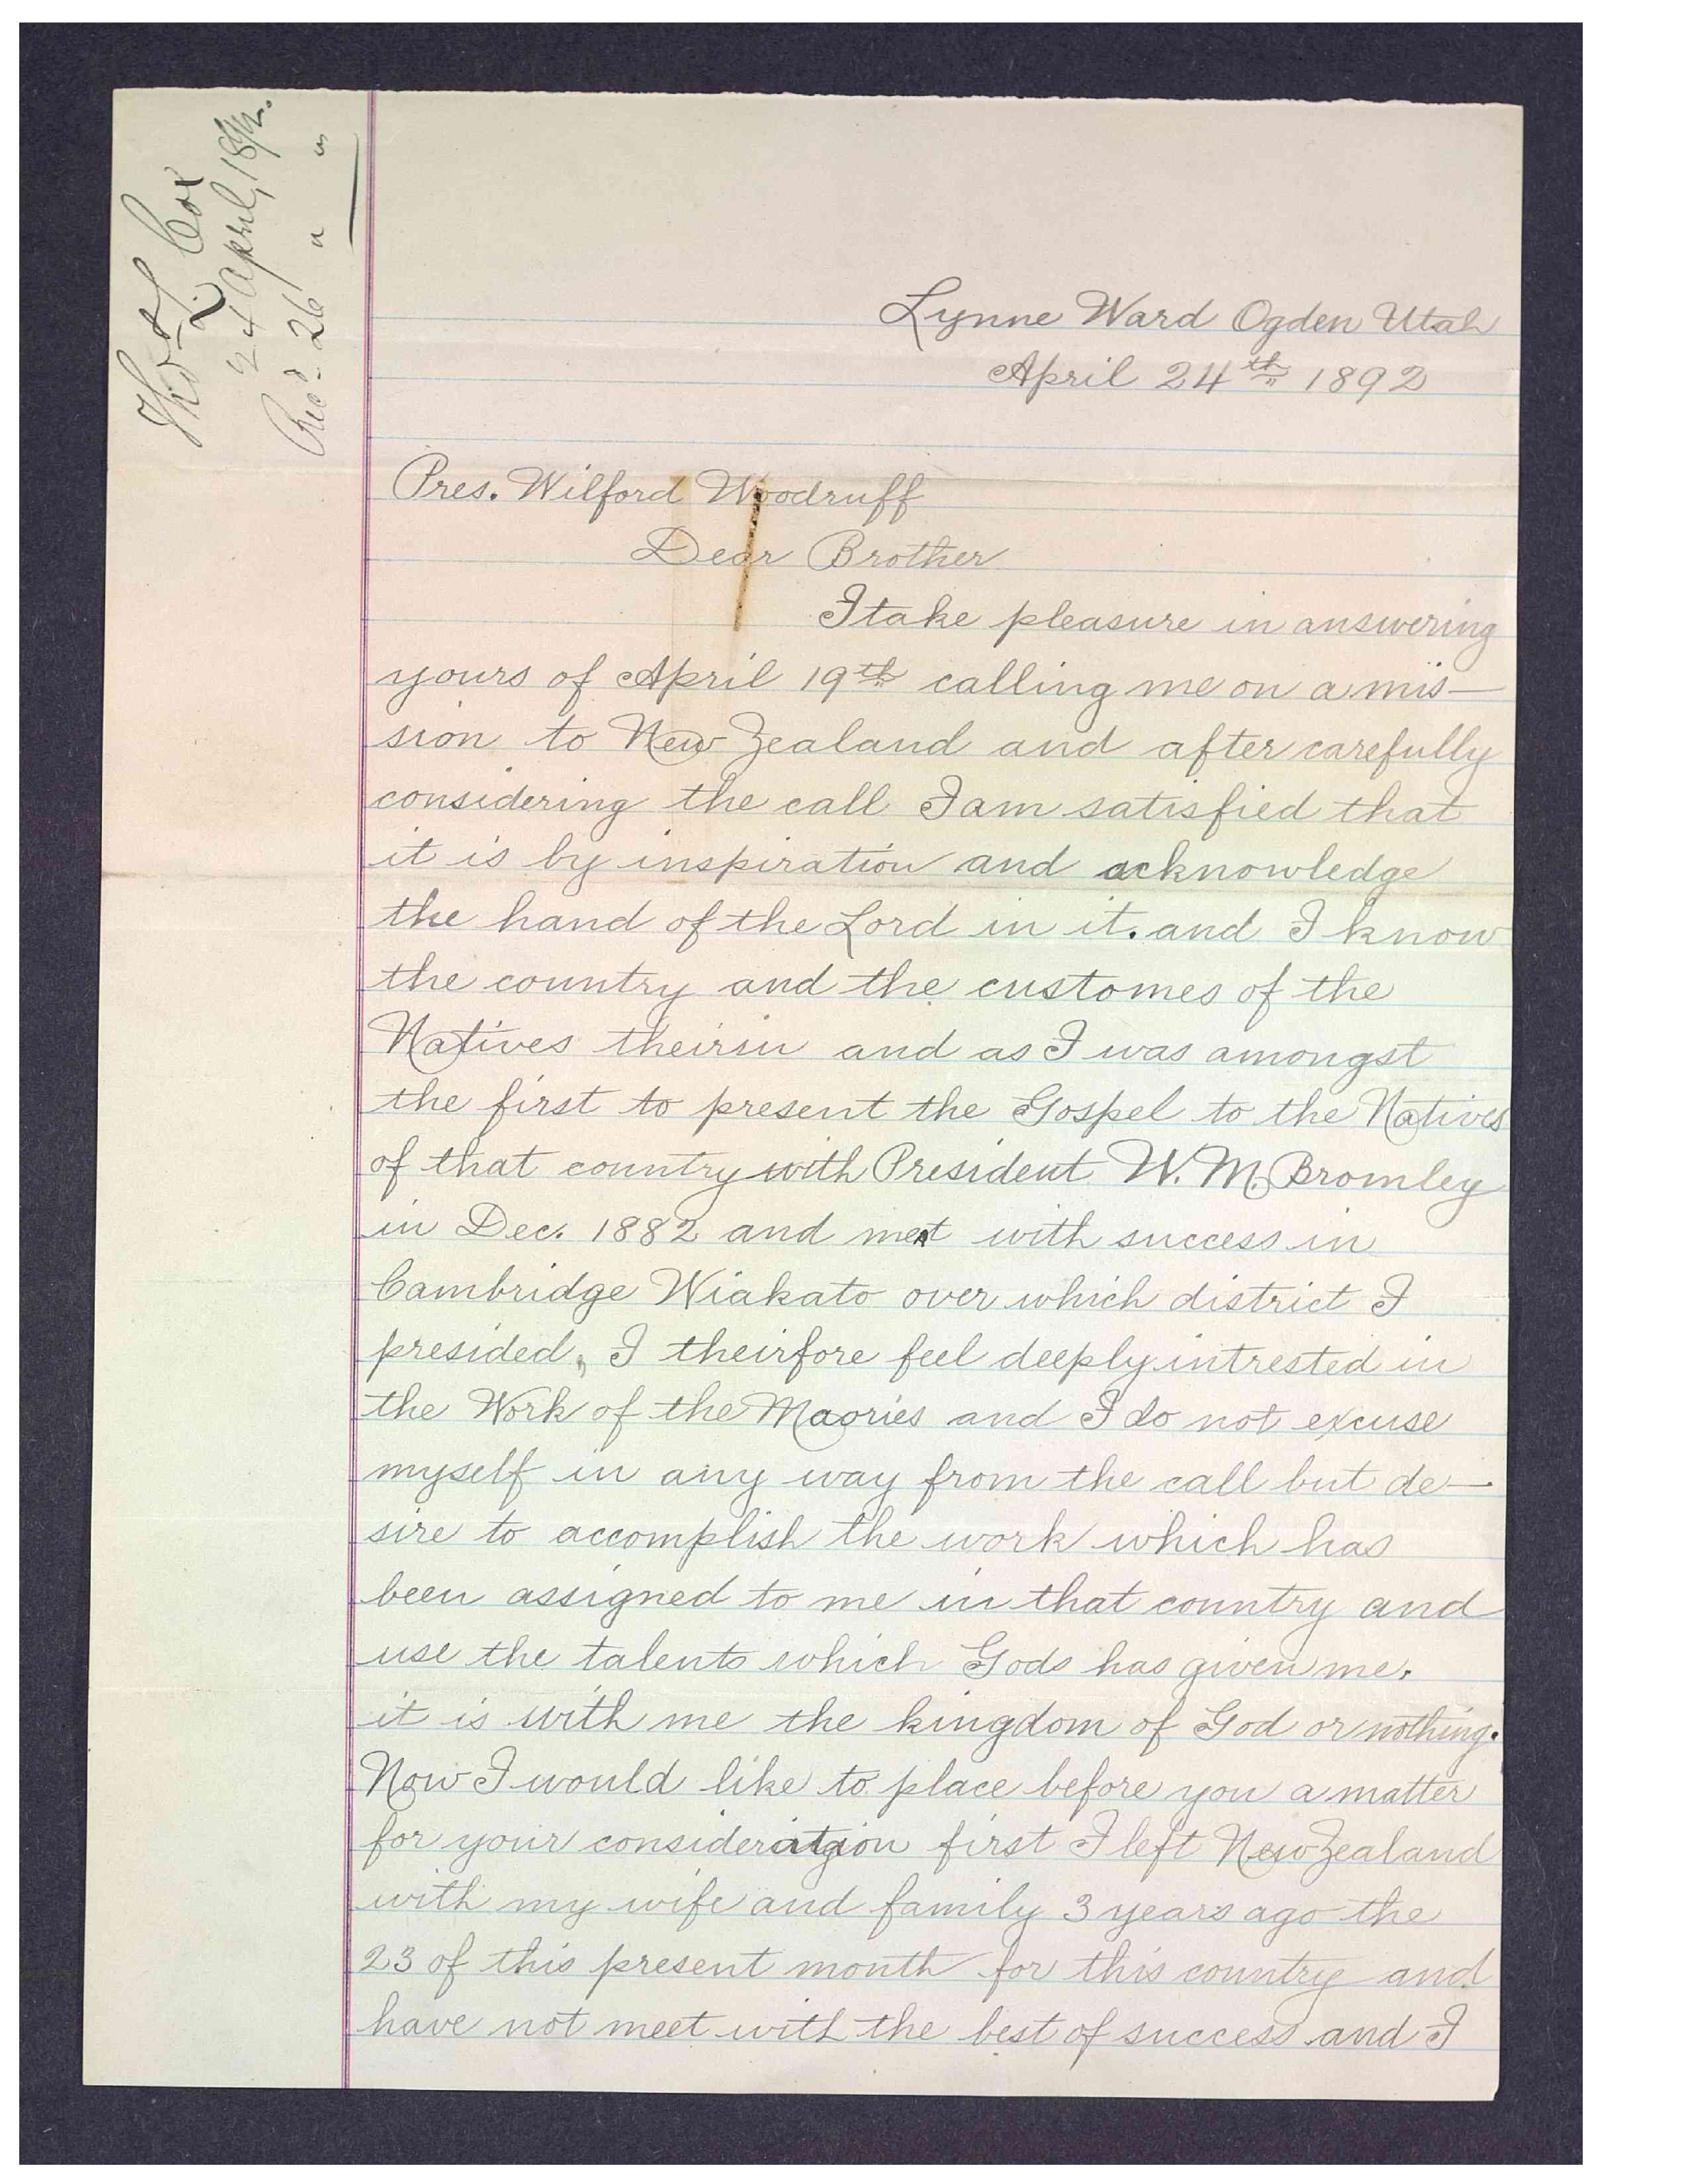 Thos L. Cox
24 April, 1892.
Recd. 26 " "
Lynne Ward Ogden Utah
April 24th 1892
Pres. Wilford Woodruff
Dear Brother
I take pleasure in answering
yours of April 19th calling me on a mis-
sion to New Zealand and after carefully
considering the call I am satisfied that
it is by inspiration and acknowledge
the hand of the Lord in it. and I know
the country and the customes of the
Natives theirin and as I was amongst
the first to present the Gospel to the Natives
of that country with President W. M. Bromley
in Dec. 1882 and met with success in
Cambridge Wiakato over which district I
presided, I theirfore feel deeply intrested in
the Work of the Maories and I do not excuse
myself in any way from the call but de-
sire to accomplish the work which has
been assigned to me in that country and
use the talents which Gods has given me.
it is with me the kingdom of God or nothing.
Now I would like to place before you a matter
for your consideration first I left New Zealand
with my wife and family 3 years ago the
23 of this present month for this country and
have not meet with the best of success and I